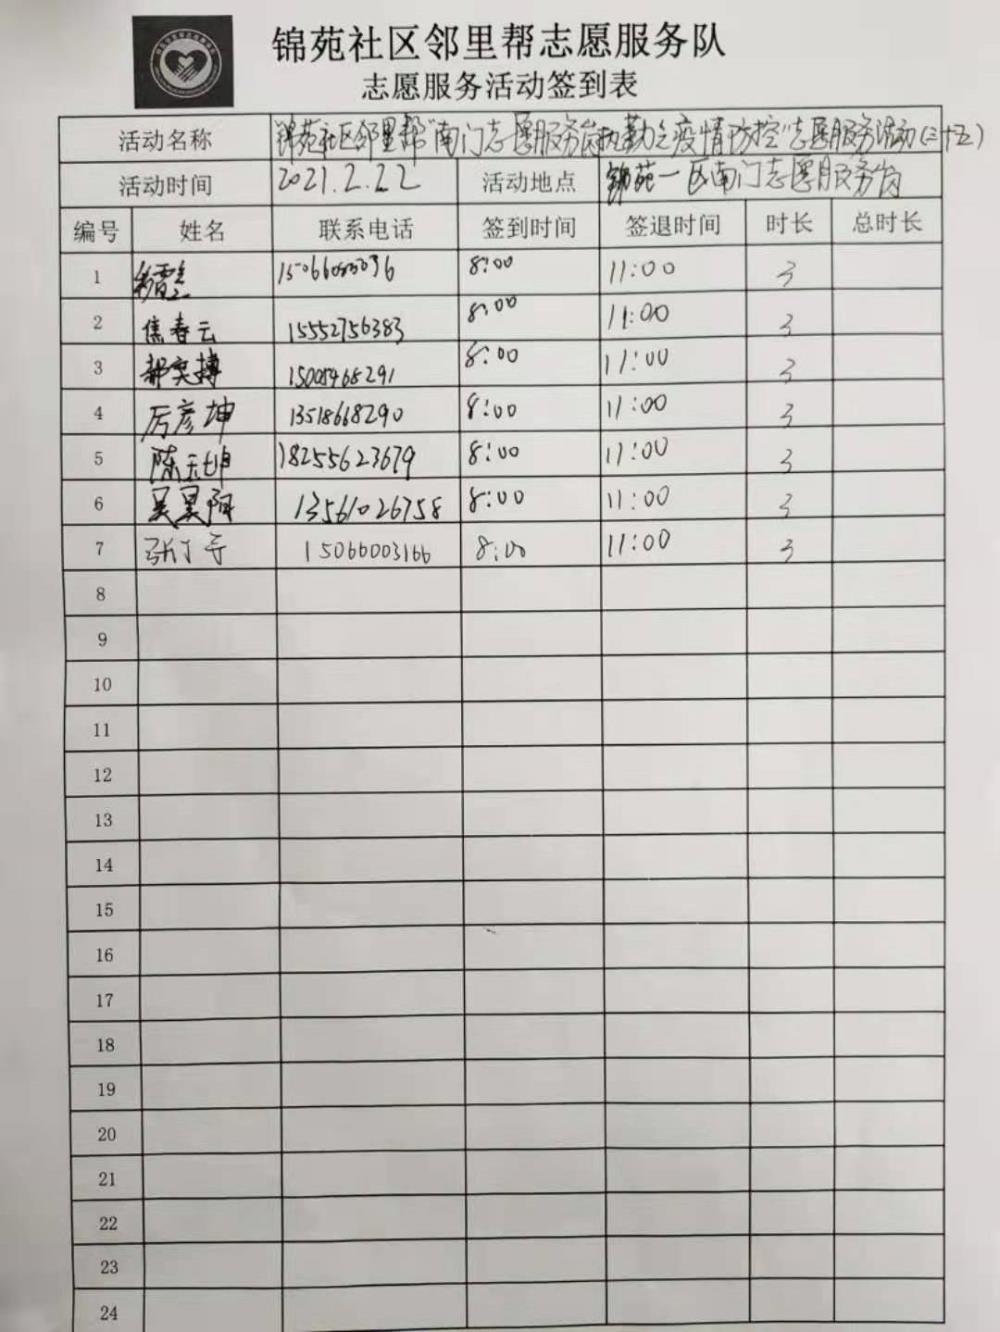 锦苑社区邻里帮志愿服务队
志愿服务活动签到表
活动名称 锦苑社区邻里帮“南门志愿服务岗执勤之疫情防控”志愿服务活动(三十五)
活动时间 2021.2.22 活动地点 锦苑一区南门志愿服务岗
编号 姓名 联系电话 签到时间 签退时间 时长 总时长
1 8:00 11:00 3
2 焦春云 15552756383 8:00 11:00 3
3 郝奕搏 8:00 11:00 3
4 厉彦坤 13518668290 8:00 11:00 3
5 陈 18255623679 8:00 11:00 3
6 吴昊阳 13561026758 8:00 11:00 3
7 15066003166 8:00 11:00 3
8
9
10
11
12
13
14
15
16
17
18
19
20
21
22
23
24